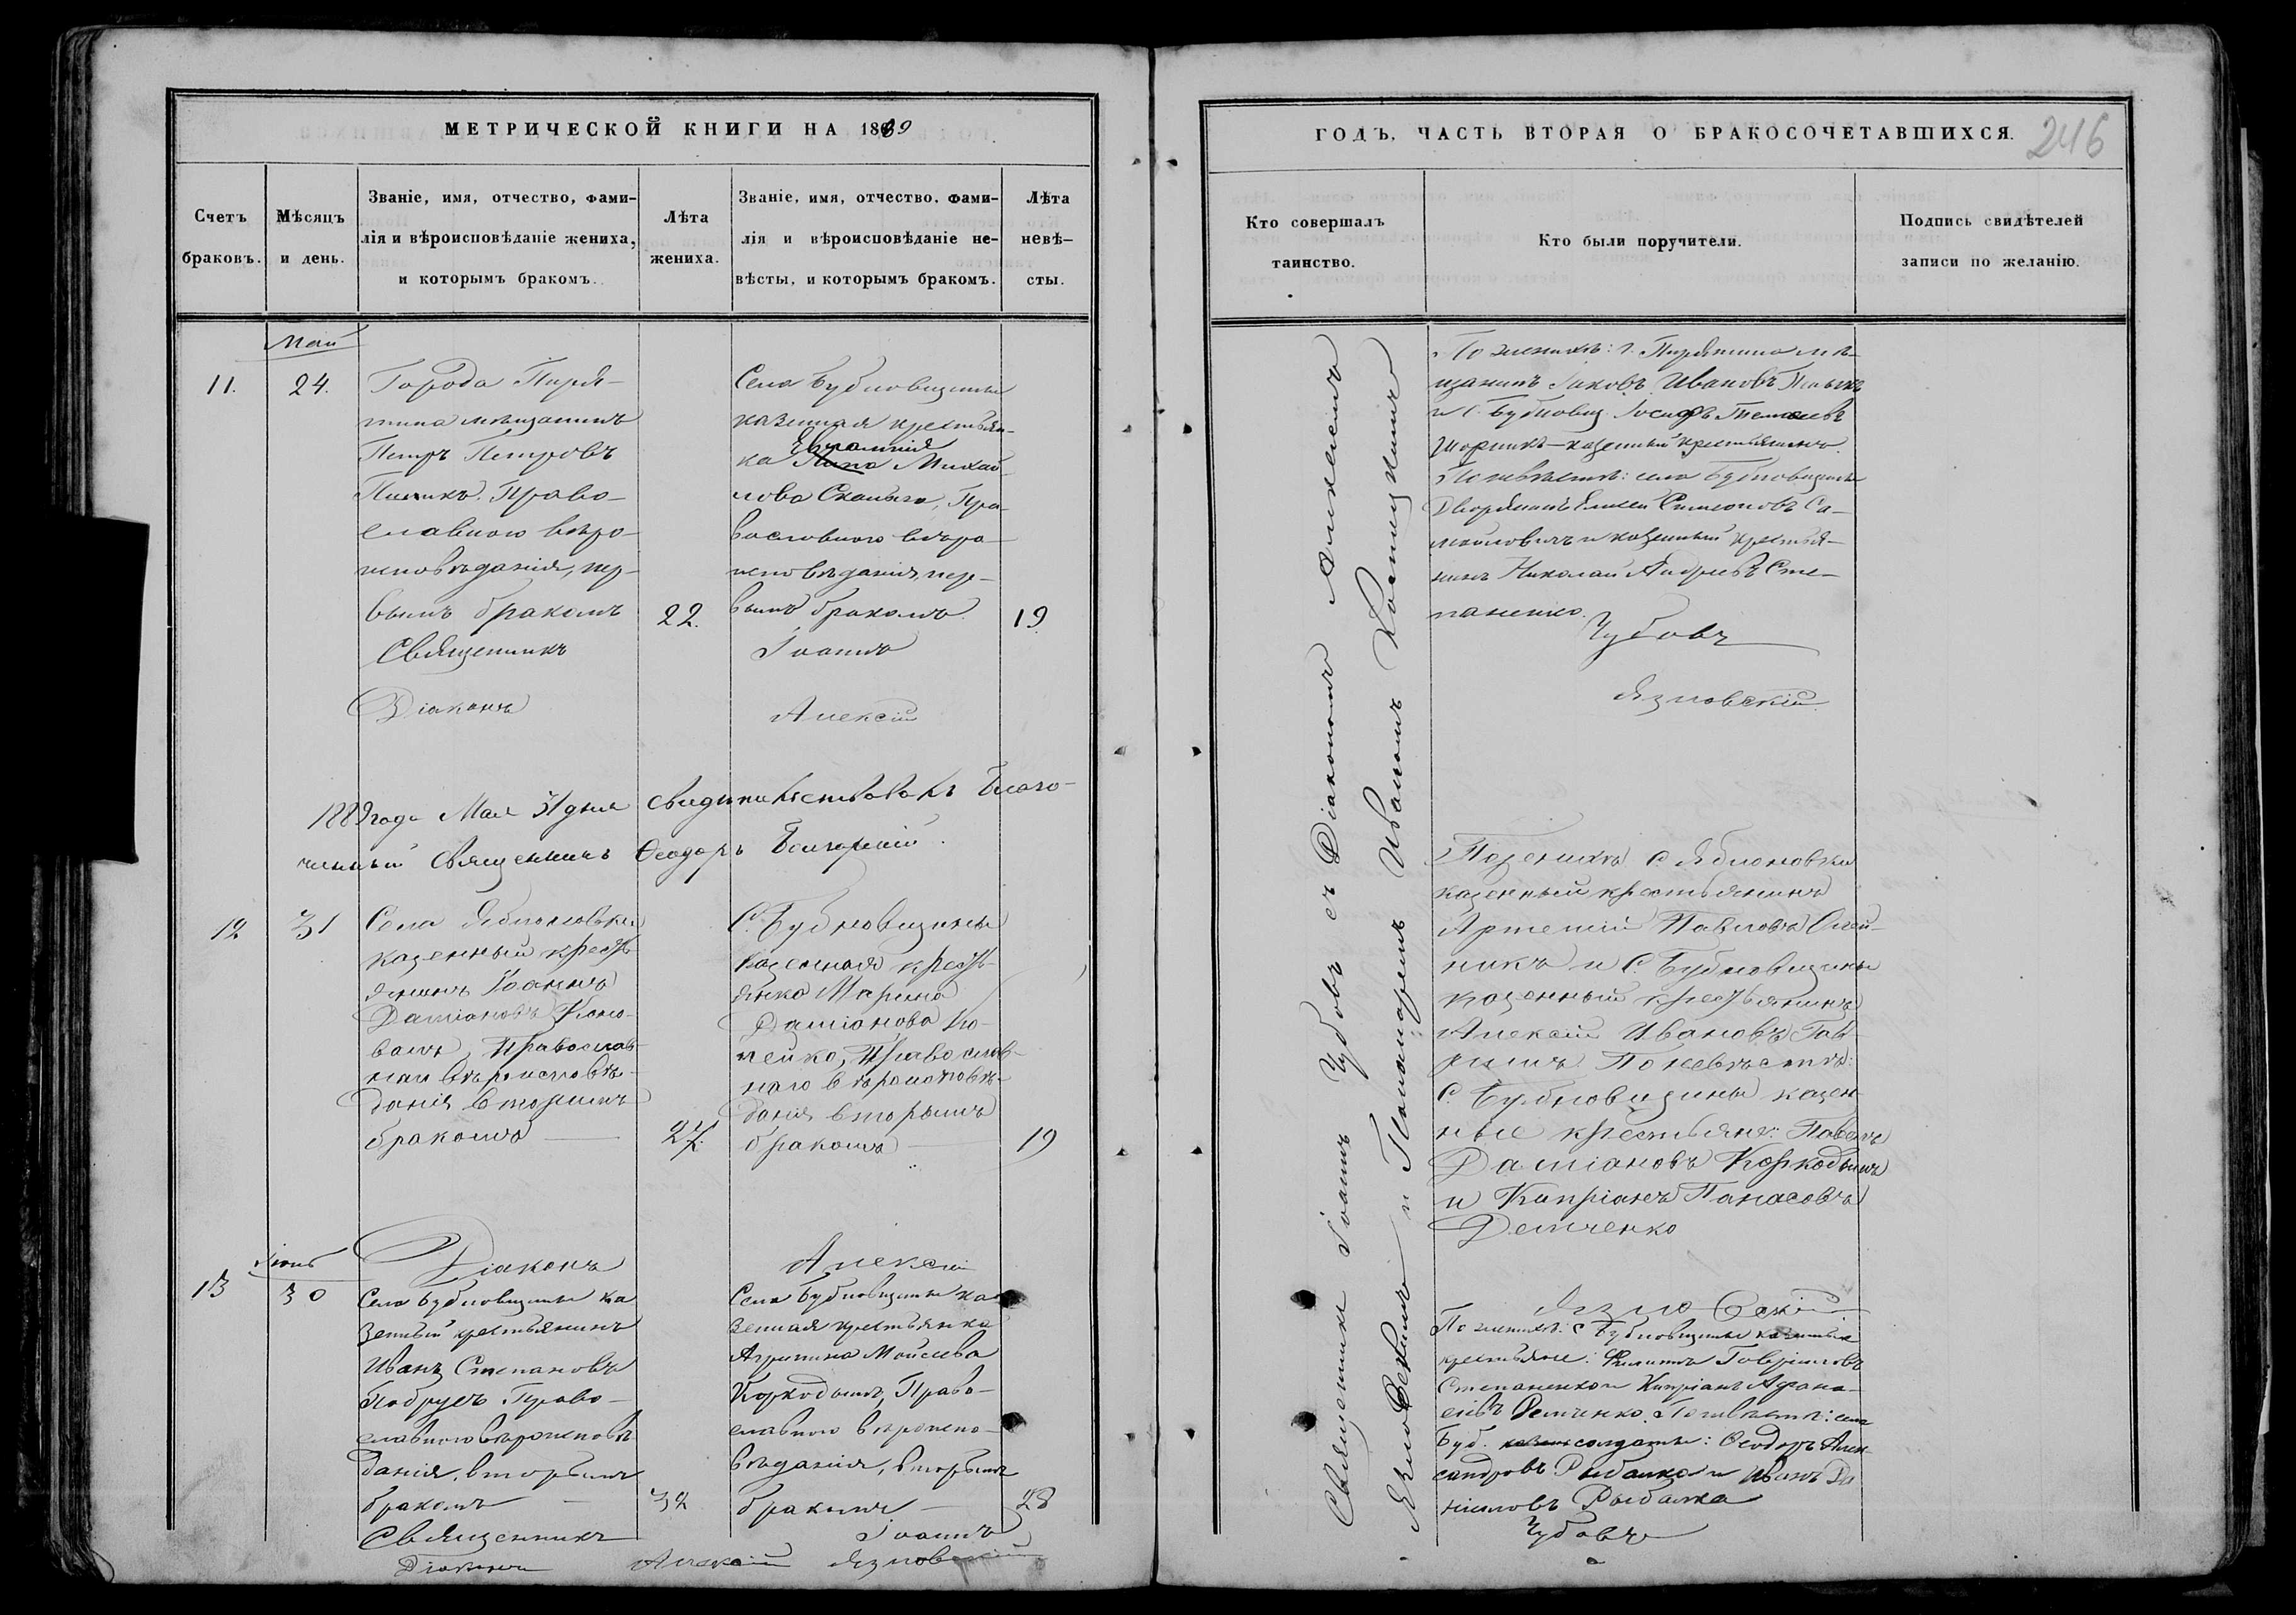 МЕТРИЧЕСКОЙ КНИГИ НА 1889
Счетъ браковъ.
Мѣсяцъ и день.
Званіе, имя, отчество, фами-
лія и вѣроисповѣданіе жениха,
и которымъ бракомъ.
Лѣта жениха.
Званіе, имя, отчество, фами-
лія и вѣроисповѣданіе не-
вѣсты, и которымъ бракомъ.
Лѣта невѣ-
сты.
Май
11.
24.
Города Пиря-
тина мѣщанинъ
Петръ Петровъ
Право-
славного вѣро-
исповѣданія, пер-
вымъ бракомъ
22.
Села Бубновщины
казенная крестьян-
ка Михай
лова Пра-
вославного вѣро-
исповѣданія, пер-
вымъ бракомъ
19.
Священникъ Іоаннъ
Діаконъ Алексій
1889 года Мая 31 дня свидѣтельствовалъ Благо-
чинный Священникъ Ѳеодоръ
12
31
Села Яблоновки
казенный кресть
янинъ Іоаннъ
Даміановъ Коно-
валъ, Православ-
наго вѣроисповѣ-
данія вторымъ
бракомъ
27.
С. Бубновщины
казенная кресть-
янка Марина
Даміанова
Православ-
наго вѣроисповѣ-
данія вторымъ
бракомъ
19
Діаконъ Алексій
Іюнь
13
30
Села Бубновщины ка
зенный крестьянинъ
Иванъ Степановъ
Право-
славного вѣроисповѣ-
данія, вторымъ
бракомъ
32
Села Бубновщины ка
зенная крестьянка
Агрипина Мойсеева
Коркодымъ, Право-
славного вѣроиспо-
вѣданія, вторымъ
бракомъ
28
Священникъ Іоаннъ
Діаконъ Алексій Язловскій
ГОДЪ, ЧАСТЬ ВТОРАЯ О БРАКОСОЧЕТАВШИХСЯ.
246
Кто совершалъ
таинство.
Кто были поручители.
Подпись свидѣтелей
записи по желанію.
Священникъ Іоаннъ Чубовъ съ Діакономъ Алексіемъ
Язловскимъ и Пономаремъ Иваномъ
По женихѣ: г. Пирятина мѣ-
щанинъ Іаковъ Ивановъ
и С. Бубновщ. Іосифъ
казенный крестьянинъ.
По невѣстѣ: села Бубновщины
Дворянинъ Елисей Симеоновъ Са-
мойловичъ и казенный крестья-
нинъ Николай Андреевъ Сте-
паненко.
Чубовъ
Язловскій
По женихѣ С Яблоновки
казенный крестьянинъ
Артемій Павловъ Олей-
никъ и С. Бубновщины
казенный крестьянинъ
Алексій Ивановъ
По невѣстѣ:
С. Бубновщины казен-
ные крестьяне: Павелъ
Даміановъ Коркодымъ
и Кипріанъ Панасовъ
Демченко
Язловскій
По женихѣ: с Бубновщины казенные
крестьяне: Филиппъ Гавріиловъ
Степаненко и Кипріанъ Афана-
сіевъ Демченко. По невѣстѣ: села
Буб. солдаты: Ѳеодоръ Алек
сандровъ Рыбалка и Иванъ Да
ніиловъ Рыбалка
Чубовъ